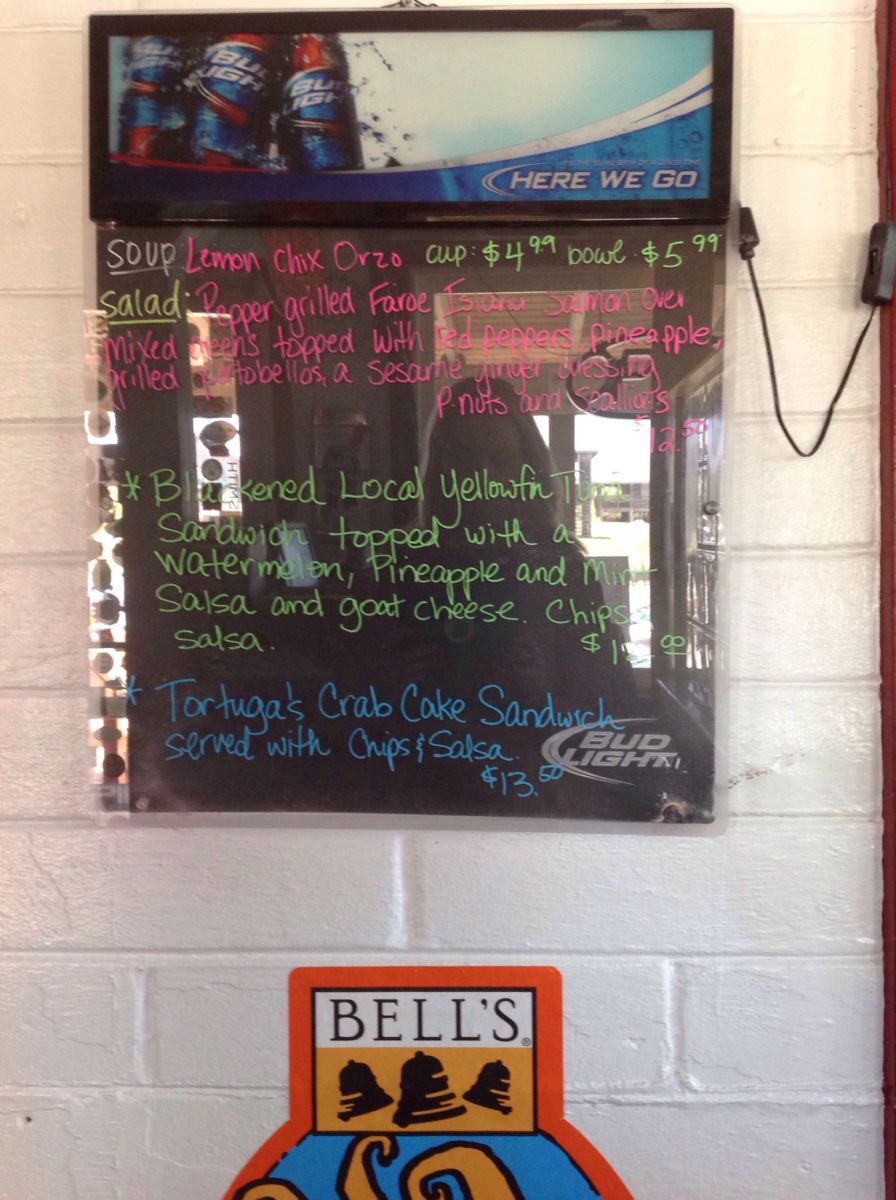 BUD LIGHT
BUD LIGHT
BUD LIGHT
HERE WE GO
SOUP Lemon Chix Orzo cup: $4.99 bowl $5.99
Salad: Pepper grilled Faroe Island Salmon over
Mixed greens topped with red peppers, pineapple,
grilled portobellos, a sesame ginger dressing
P.nuts and Scallions
$12.50
* Blackened Local Yellowfin Tuna
Sandwich topped with a
Watermelon, Pineapple and Mint
Salsa and goat cheese. Chips &
salsa.
* Tortuga's Crab Cake Sandwich
served with Chips & Salsa.
$13.50
BUD LIGHT
BELL'S